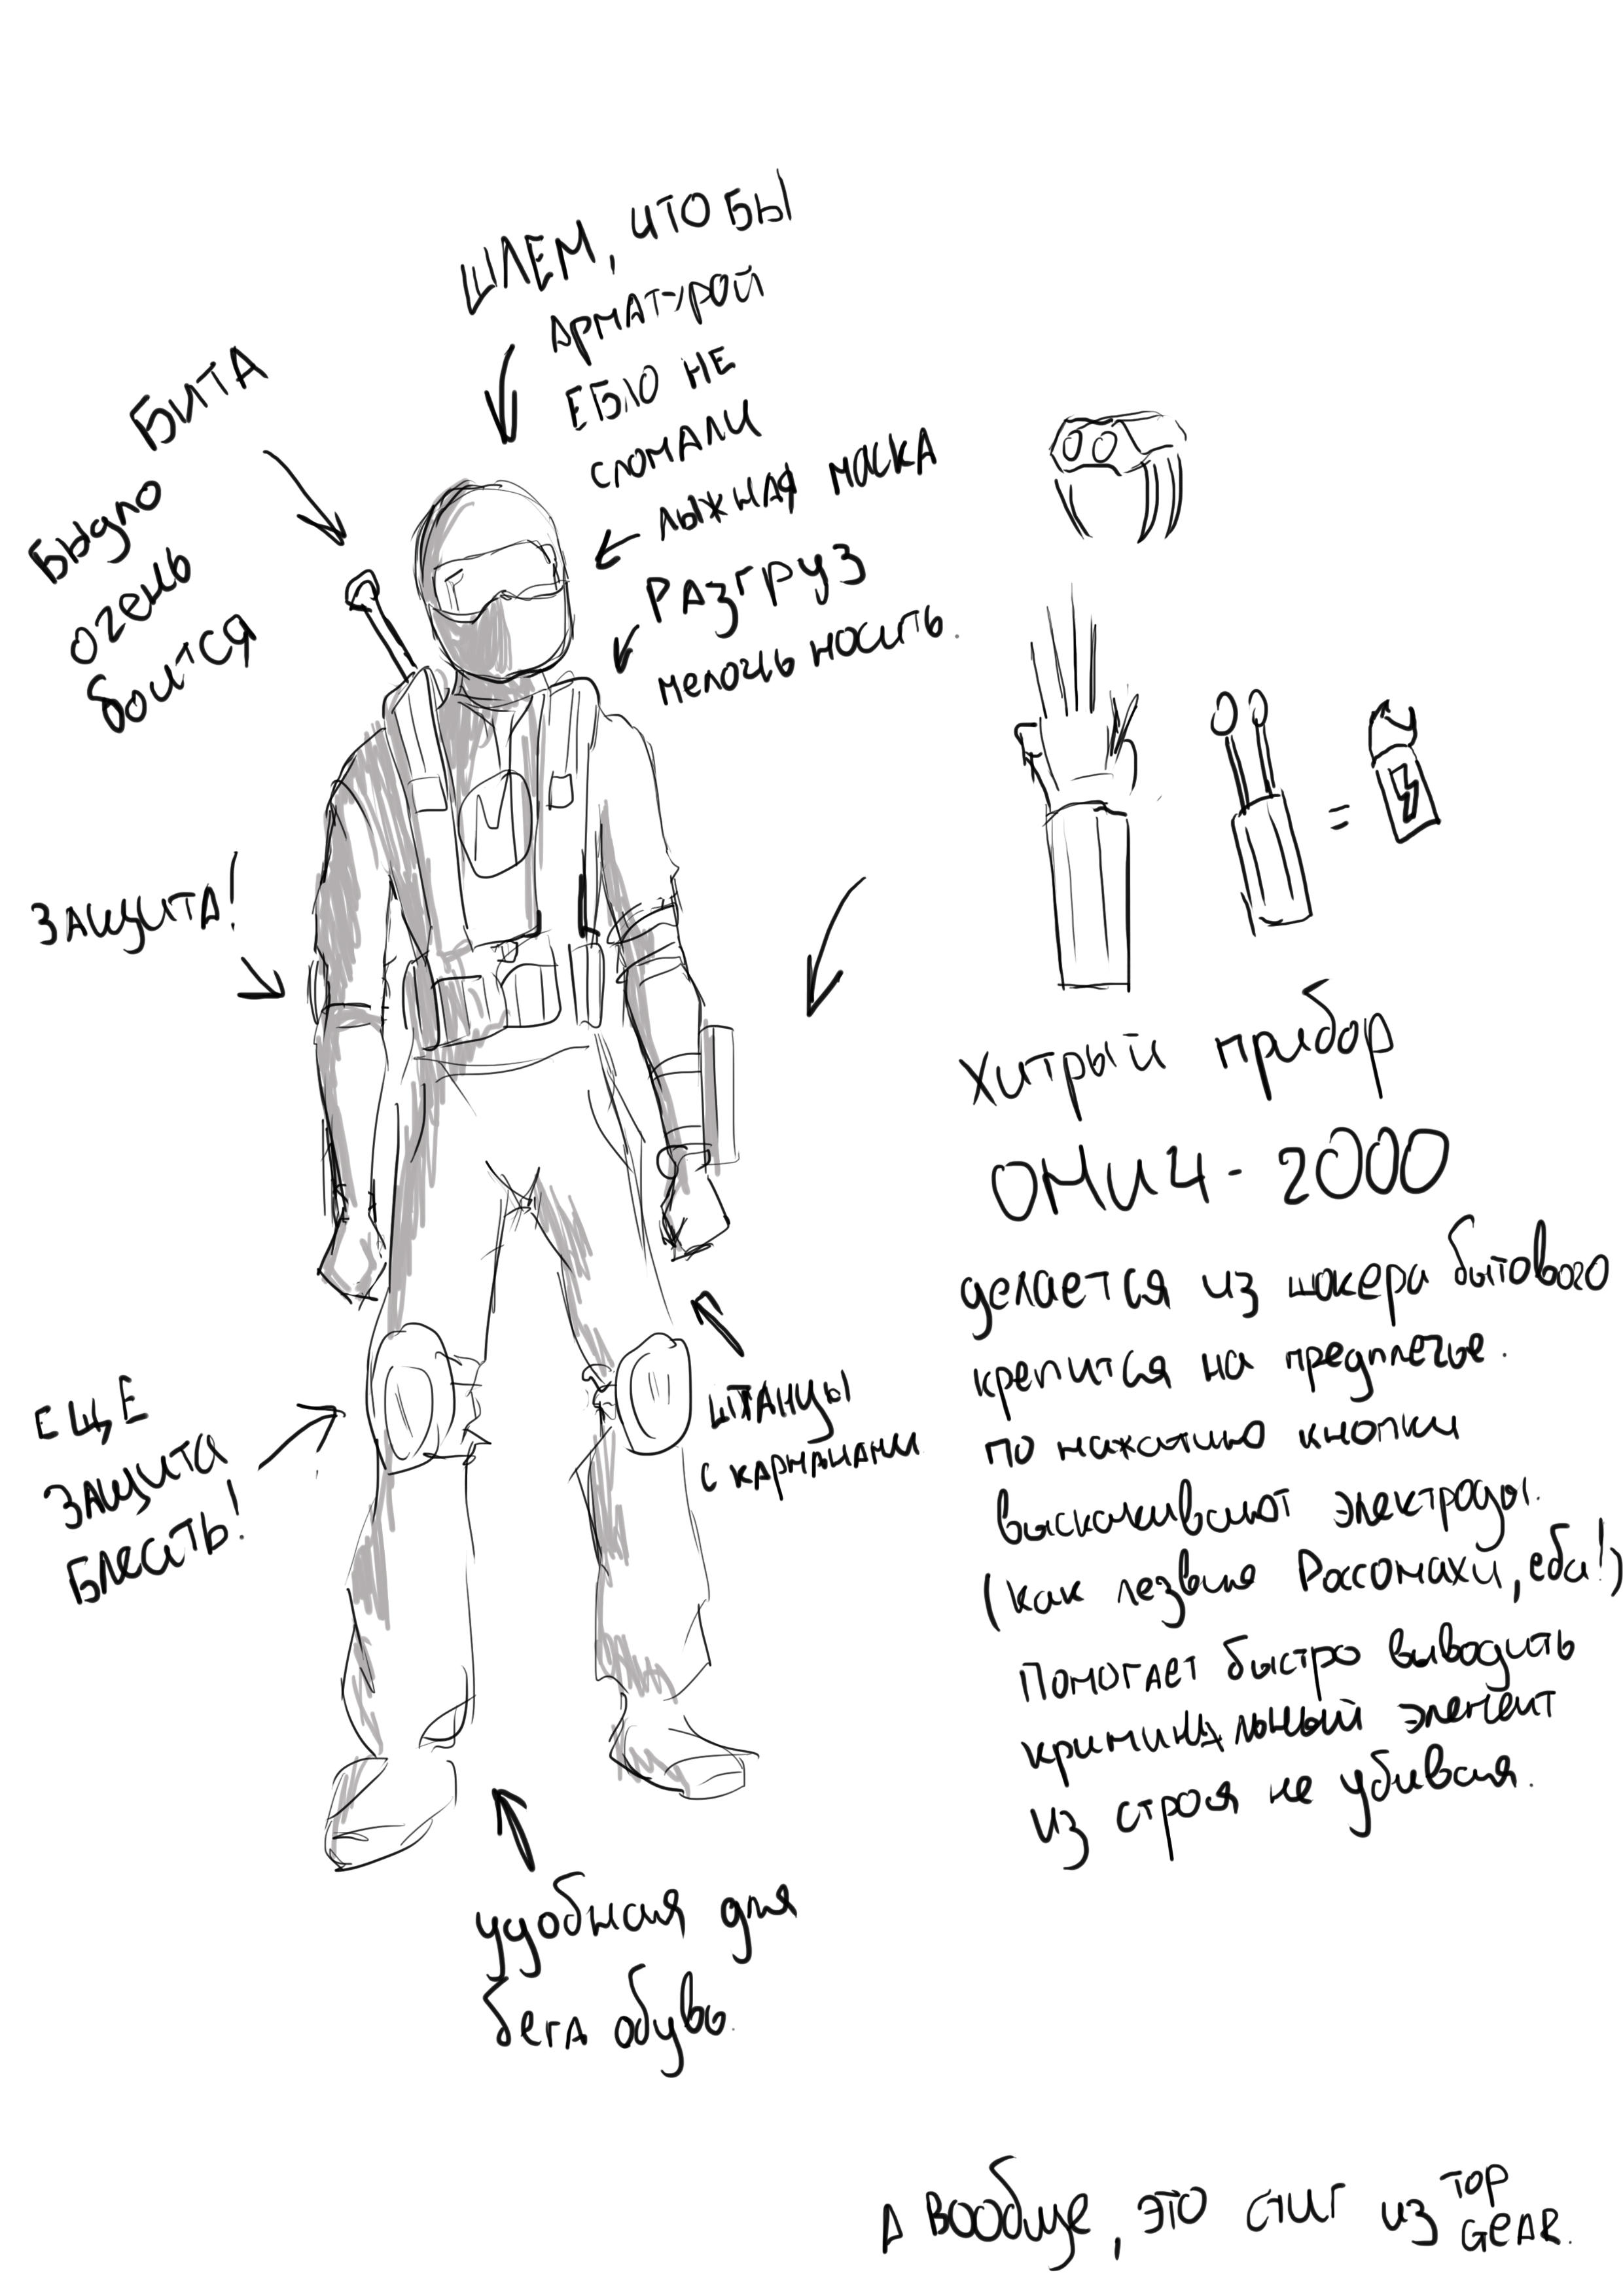 ШЛЕМ, ЧТО БЫ
АРМАТУРОЙ
ЕБЛО НЕ
СЛОМАЛИ
БИТА
БЫДЛО
ОЧЕНЬ
БОИТСЯ
ЛЫЖНАЯ МАСКА
РАЗГРУЗ
МЕЛОЧЬ НОСИТЬ.
ЗАЩИТА!
Хитрый прибор
ОМИЧ - 2000
делается из шокера бытового
крепится на предплечье.
по нажатию кнопки
выскакивают электроды.
(как лезвия Россомахи, еба!)
Помогает быстро выводить
криминальный элемент
из строя не убивая.
ШТАНЦЫ
с карманами
ЕЩЕ
ЗАЩИТА
БЛЕАТЬ!
удобная для
бега обувь.
А вообще, это стиг из TOP
GEAR.